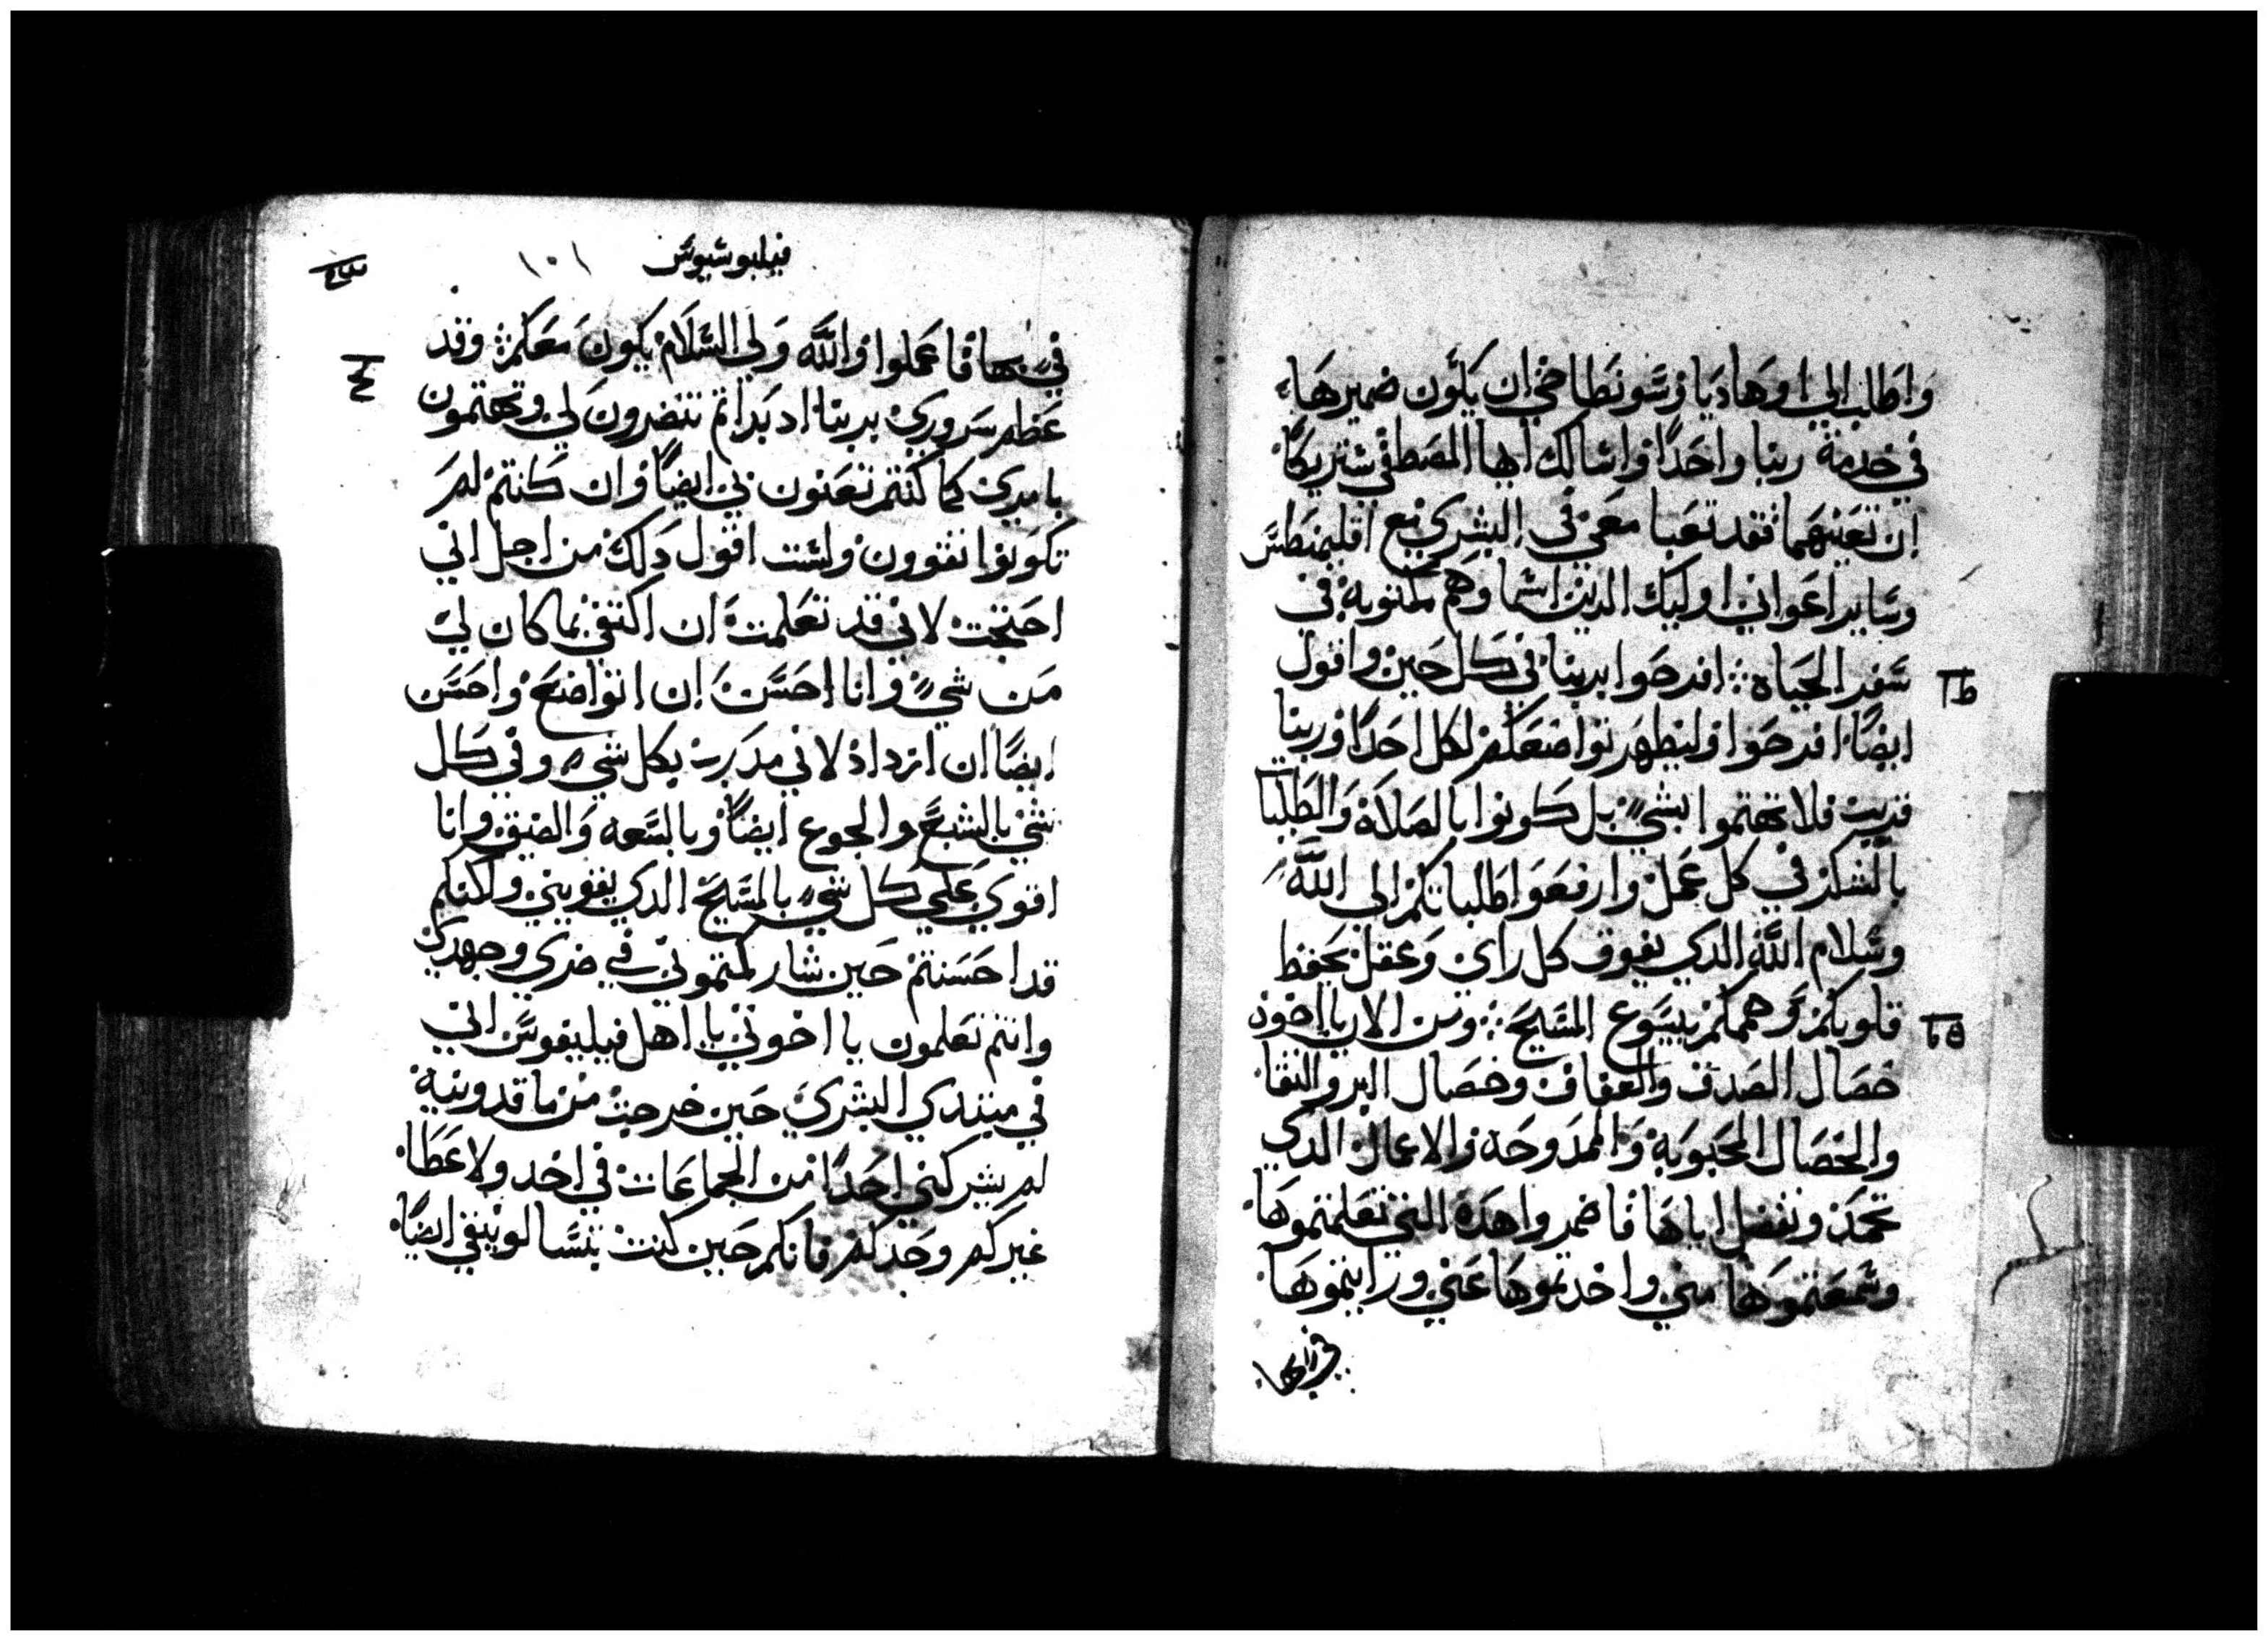 واطلب الي اوهاديا وسونطاخي ان يكون ضميرها
في خدمة ربنا واحدًا واسالك ايها المصطفي شريكًا
ان تعينهما فقد تعبا معي في البشري مع اقليمنطس
وساير اعواني اوليك الدين اسماوهم مكتوبة في
سفر الحياه ؛ افرحوا بربنا في كل حين واقول
ايضًا افرحوا وليظهر تواضعكم لكل احدًا وربنا
قريب فلا تهتموا بشيءٍ بل كونوا بالصلاة والطلبا
بالشكر في كل عمل وارفعوا طلباتكم الي اللَّه
وسلام اللَّه الدي يفوق كل راي وعقل يحفظ
قلوبكم وهممكم بيسوع المسيح ؛ ومن الان يا اخوة
خصال الصدق والعفاف وخصال البر والنقا
والخصال المحبوبة والممدوحه والاعمال الدي
تحمد ونفضل اياها فاضمروا هذه التي تعلمتموها
وسمعتموها مني واخدتموها عني ورايتموها
في بها
فيلبوسيوس
١٠١
في بها فاعملوا واللَّه ولي السلام يكون معكم ؛ وقد
عظم سروري بربنا اد بداتم تنضرون لي وتهتمون
بامري كما كنتم تعنون بي ايضًا وان كنتم لم
تكونوا تقوون ولست اقول دلك من اجل اني
احتجت لاني قد تعلمت ان اكتفي بما كان لي
من شيءٍ وانا احسن ان اتواضع واحسن
ايضًا ان ازداد لاني مدرب بكل شيءٍ وفي كل
شي بالشبع والجوع ايضًا وبالسعه والضيق وانا
اقوي علي كل شيءٍ بالمسيح الدي يقويني ولاكنكم
قد احسنتم حين شاركتموني في ضري وجهدي
وانتم تعلمون يا اخوتي يا اهل فيليبفوس اني
في مبتدي البشري حين خرجت من ماقدونية
لم يشركني احدًا من الجماعات في اخد ولا عطا
غيركم وحدكم فانكم حين كنت بتسالونيقي ايضًا